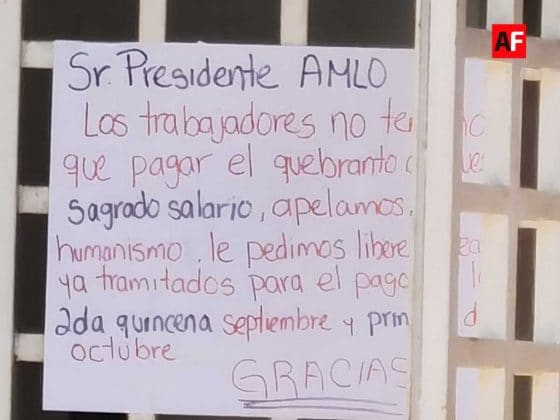 AF
Sr. Presidente AMLO
Los trabajadores no
que pagar el quebranto
sagrado salario, apelamos
humanismo. le pedimos libere
ya tramitados para el pago
2da quincena septiembre y
octubre
GRACIAS